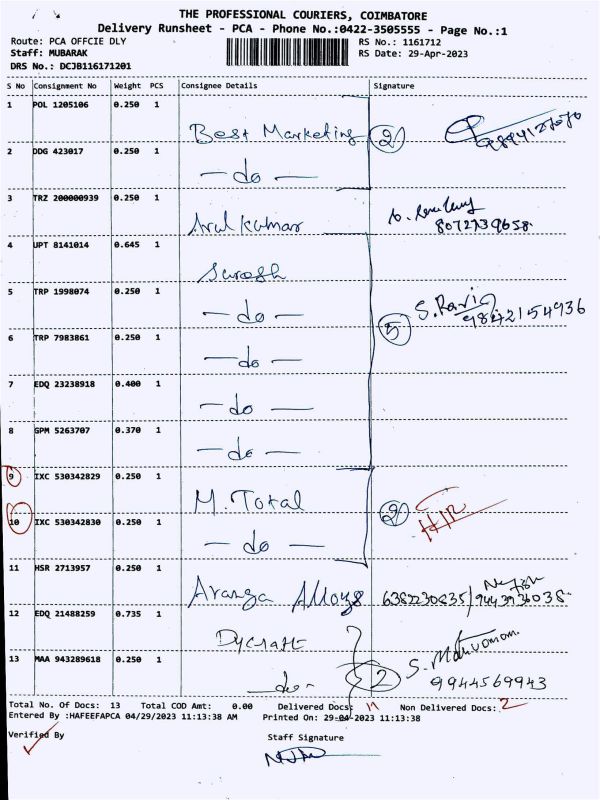 THE PROFESSIONAL COURIERS, COIMBATORE
Delivery Runsheet - PCA - Phone No.:0422-3505555 - Page No.:1
Route: PCA OFFCIE DLY RS No.: 1161712
Staff: MUBARAK RS Date: 29-Apr-2023
DRS No.: DCJB116171201
S No Consignment No Weight PCS Consignee Details Signature
1 POL 1205106 0.250 1 Best Marketing 2
2 DDG 423017 0.250 1 — do —
3 TRZ 200000939 0.250 1 Arul Kumar
4 UPT 8141014 0.645 1 Suresh
5 TRP 1998074 0.250 1 — do — 5 S. Ravi 9842154936
6 TRP 7983861 0.250 1 — do —
7 EDQ 23238918 0.400 1 — do —
8 GPM 5263707 0.370 1 — do —
9 IXC 530342829 0.250 1 M. Total
10 IXC 530342830 0.250 1 — do — 2
11 HSR 2713957 0.250 1 Alloys
12 EDQ 21488259 0.735 1
13 MAA 943289618 0.250 1 — do — 2 9944569943
Total No. Of Docs: 13 Total COD Amt: 0.00 Delivered Docs: 11 Non Delivered Docs: 2
Entered By :HAFEEFAPCA 04/29/2023 11:13:38 AM Printed On: 29-04-2023 11:13:38
Verified By Staff Signature